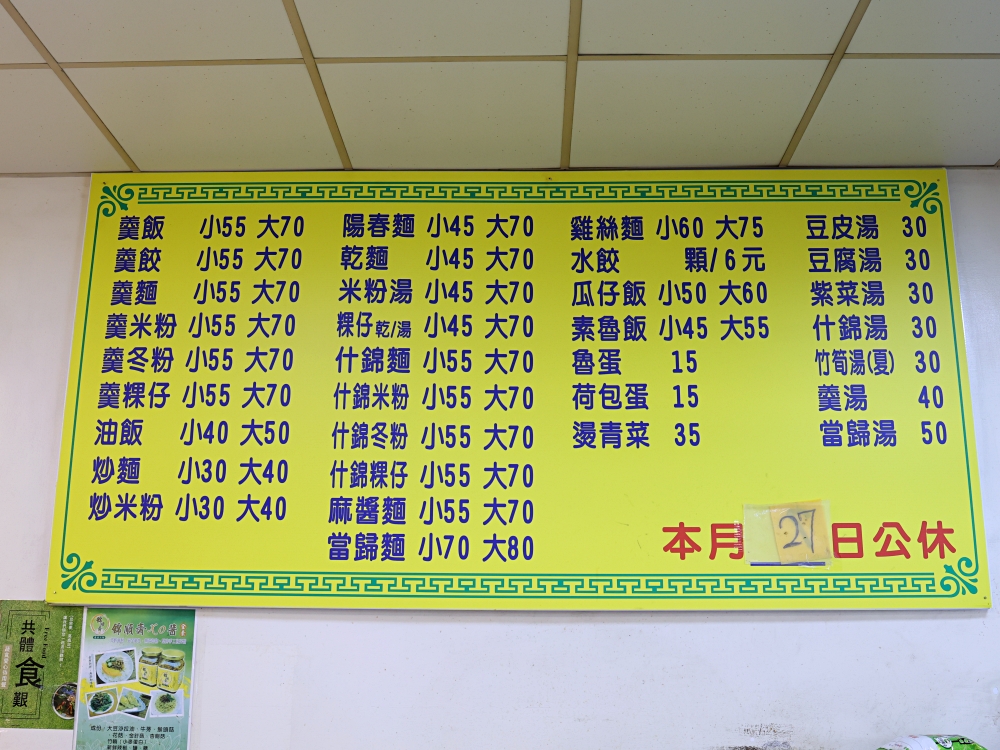 羹飯 小55 大70
羹餃 小55 大70
羹麵 小55 大70
羹米粉 小55 大70
羹冬粉 小55 大70
羹粿仔 小55 大70
油飯 小40 大50
炒麵 小30 大40
炒米粉 小30 大40
陽春麵 小45 大70
乾麵 小45 大70
米粉湯 小45 大70
粿仔乾/湯 小45 大70
什錦麵 小55 大70
什錦米粉 小55 大70
什錦冬粉 小55 大70
什錦粿仔 小55 大70
麻醬麵 小55 大70
當歸麵 小70 大80
雞絲麵 小60 大75
水餃 顆/6元
瓜仔飯 小50 大60
素魯飯 小45 大55
魯蛋 15
荷包蛋 15
燙青菜 35
豆皮湯 30
豆腐湯 30
紫菜湯 30
什錦湯 30
竹筍湯(夏) 30
羹湯 40
當歸湯 50
本月27日公休
共體
食
艱